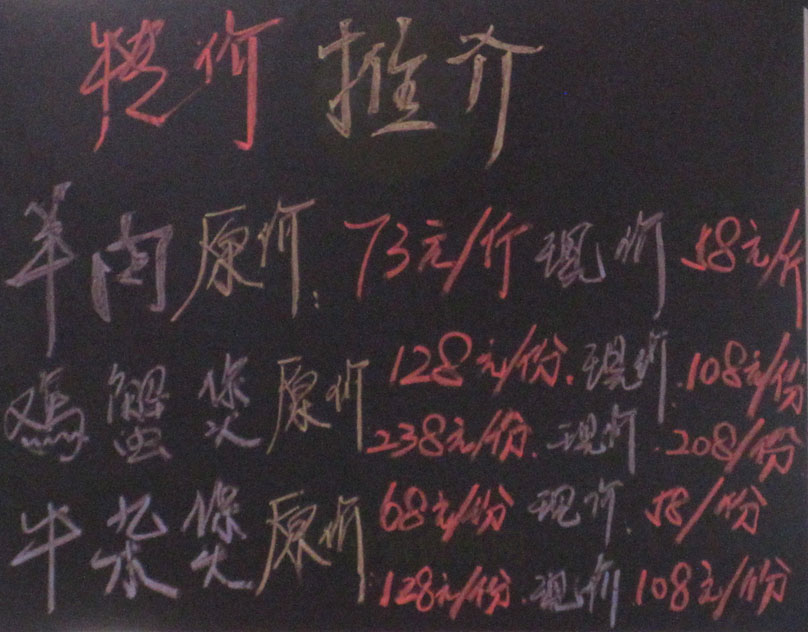 特价 推介
羊肉原价:73元/斤 现价 58元/斤
鸡蟹煲原价 128元/份.现价.108元/份
238元/份.现价.208/份
牛杂煲原价 68元/份 现价.58/份
128元/份.现价 108元/份